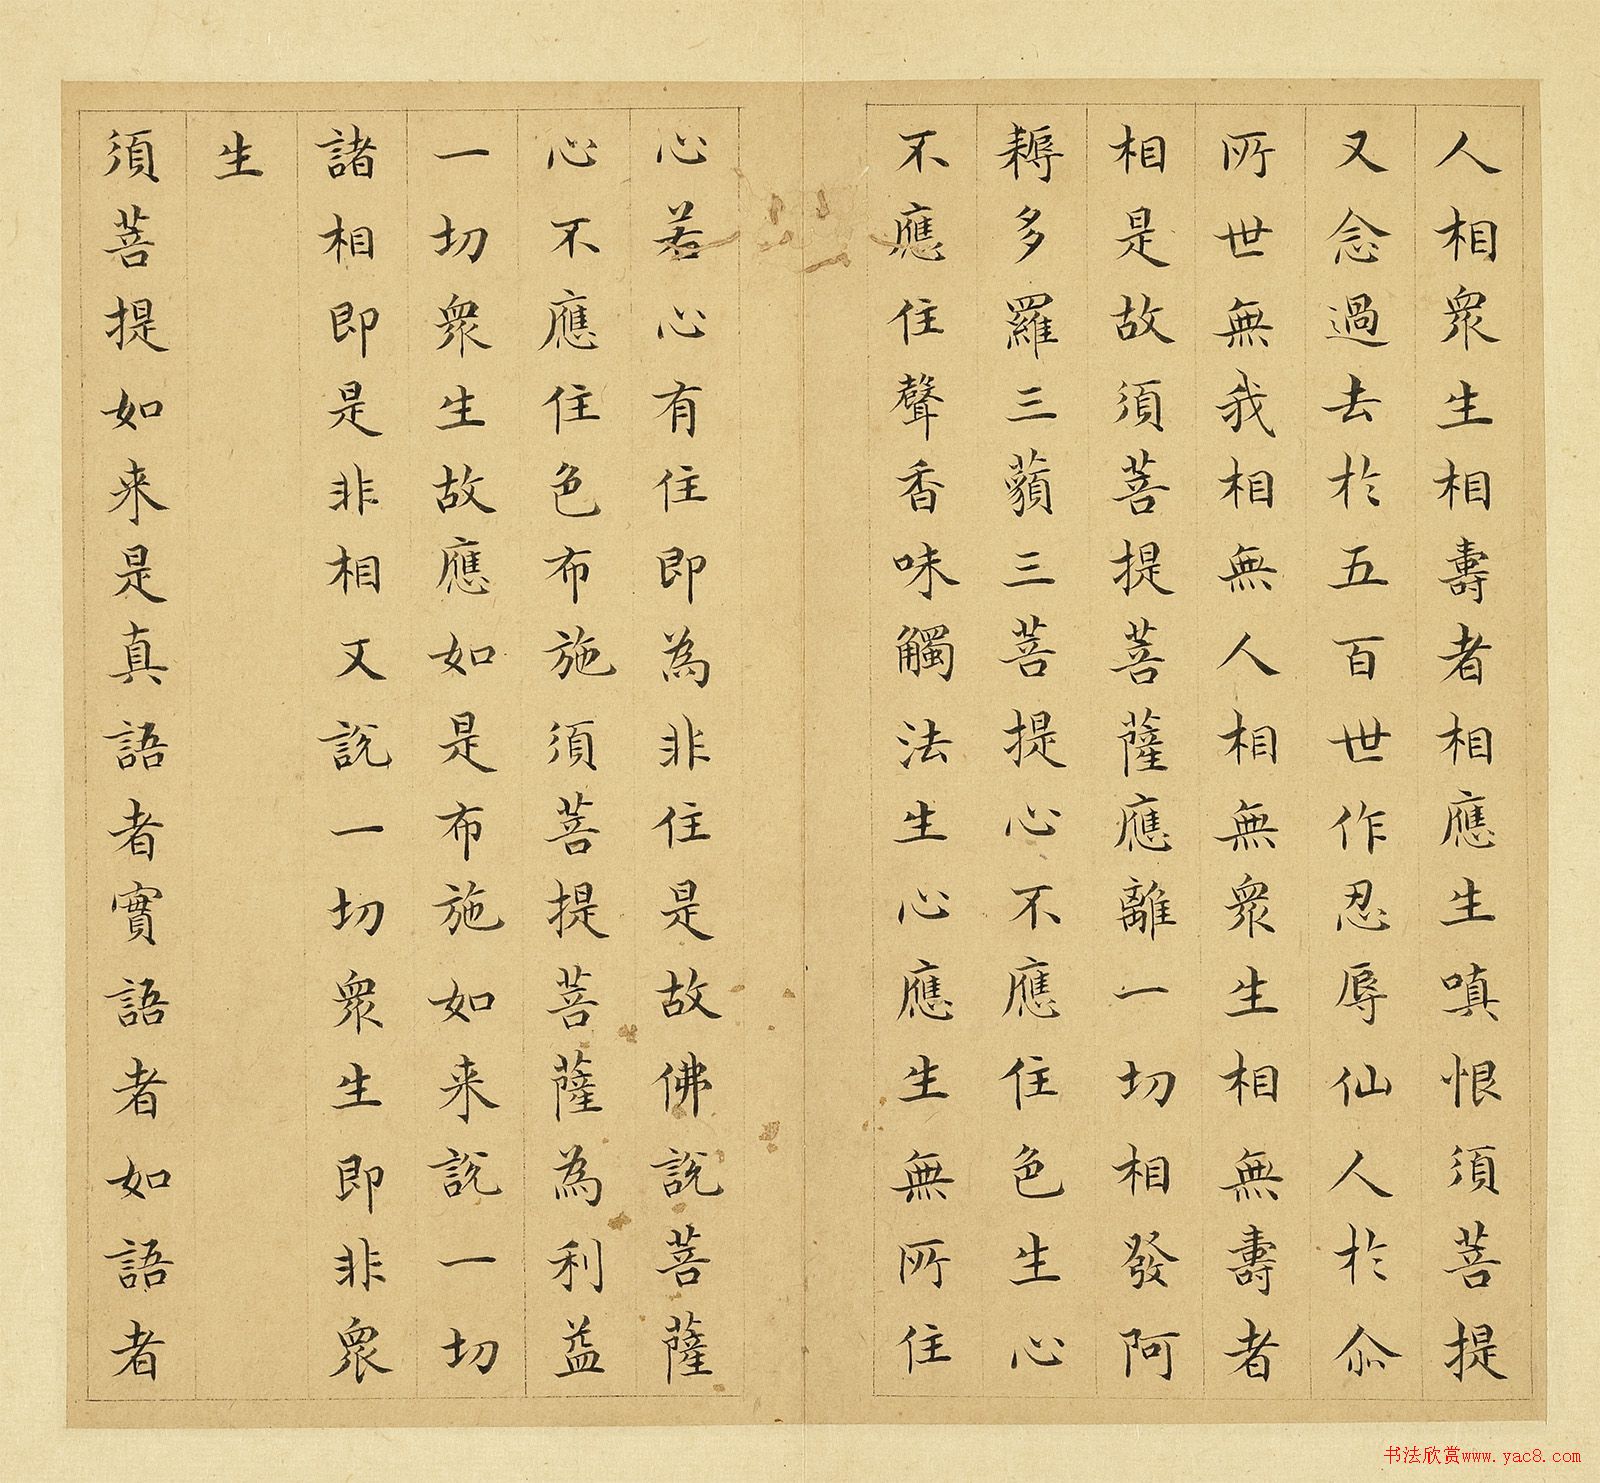 人相眾生相壽者相應生嗔恨須菩提
又念過去於五百世作忍辱仙人於尒
所世無我相無人相無眾生相無壽者
相是故須菩提菩薩應離一切相發阿
耨多羅三藐三菩提心不應住色生心
不應住聲香味觸法生心應生無所住
心若心有住即為非住是故佛說菩薩
心不應住色布施須菩提菩薩為利益
一切眾生故應如是布施如来說一切
諸相即是非相又說一切眾生即非眾
生
須菩提如来是真語者實語者如語者
书法欣赏www.yac8.com